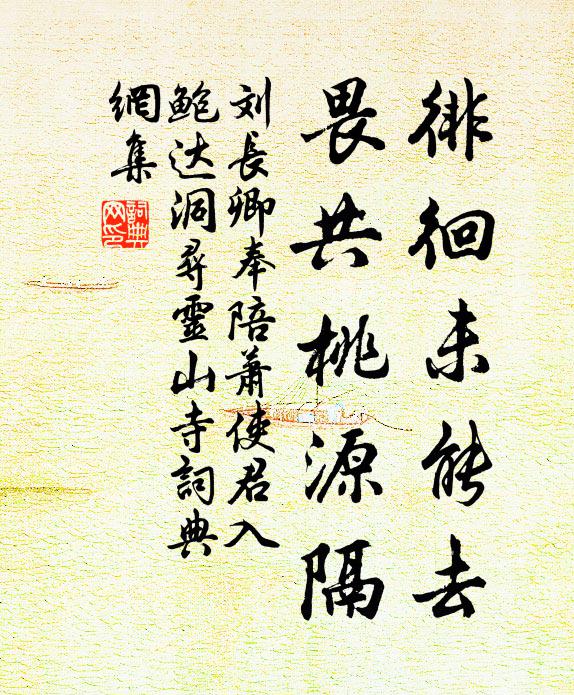 徘徊未能去
畏共桃源隔
刘長卿奉陪萧使君入
鲍达洞尋靈山寺詞典
網集
詞典
网印